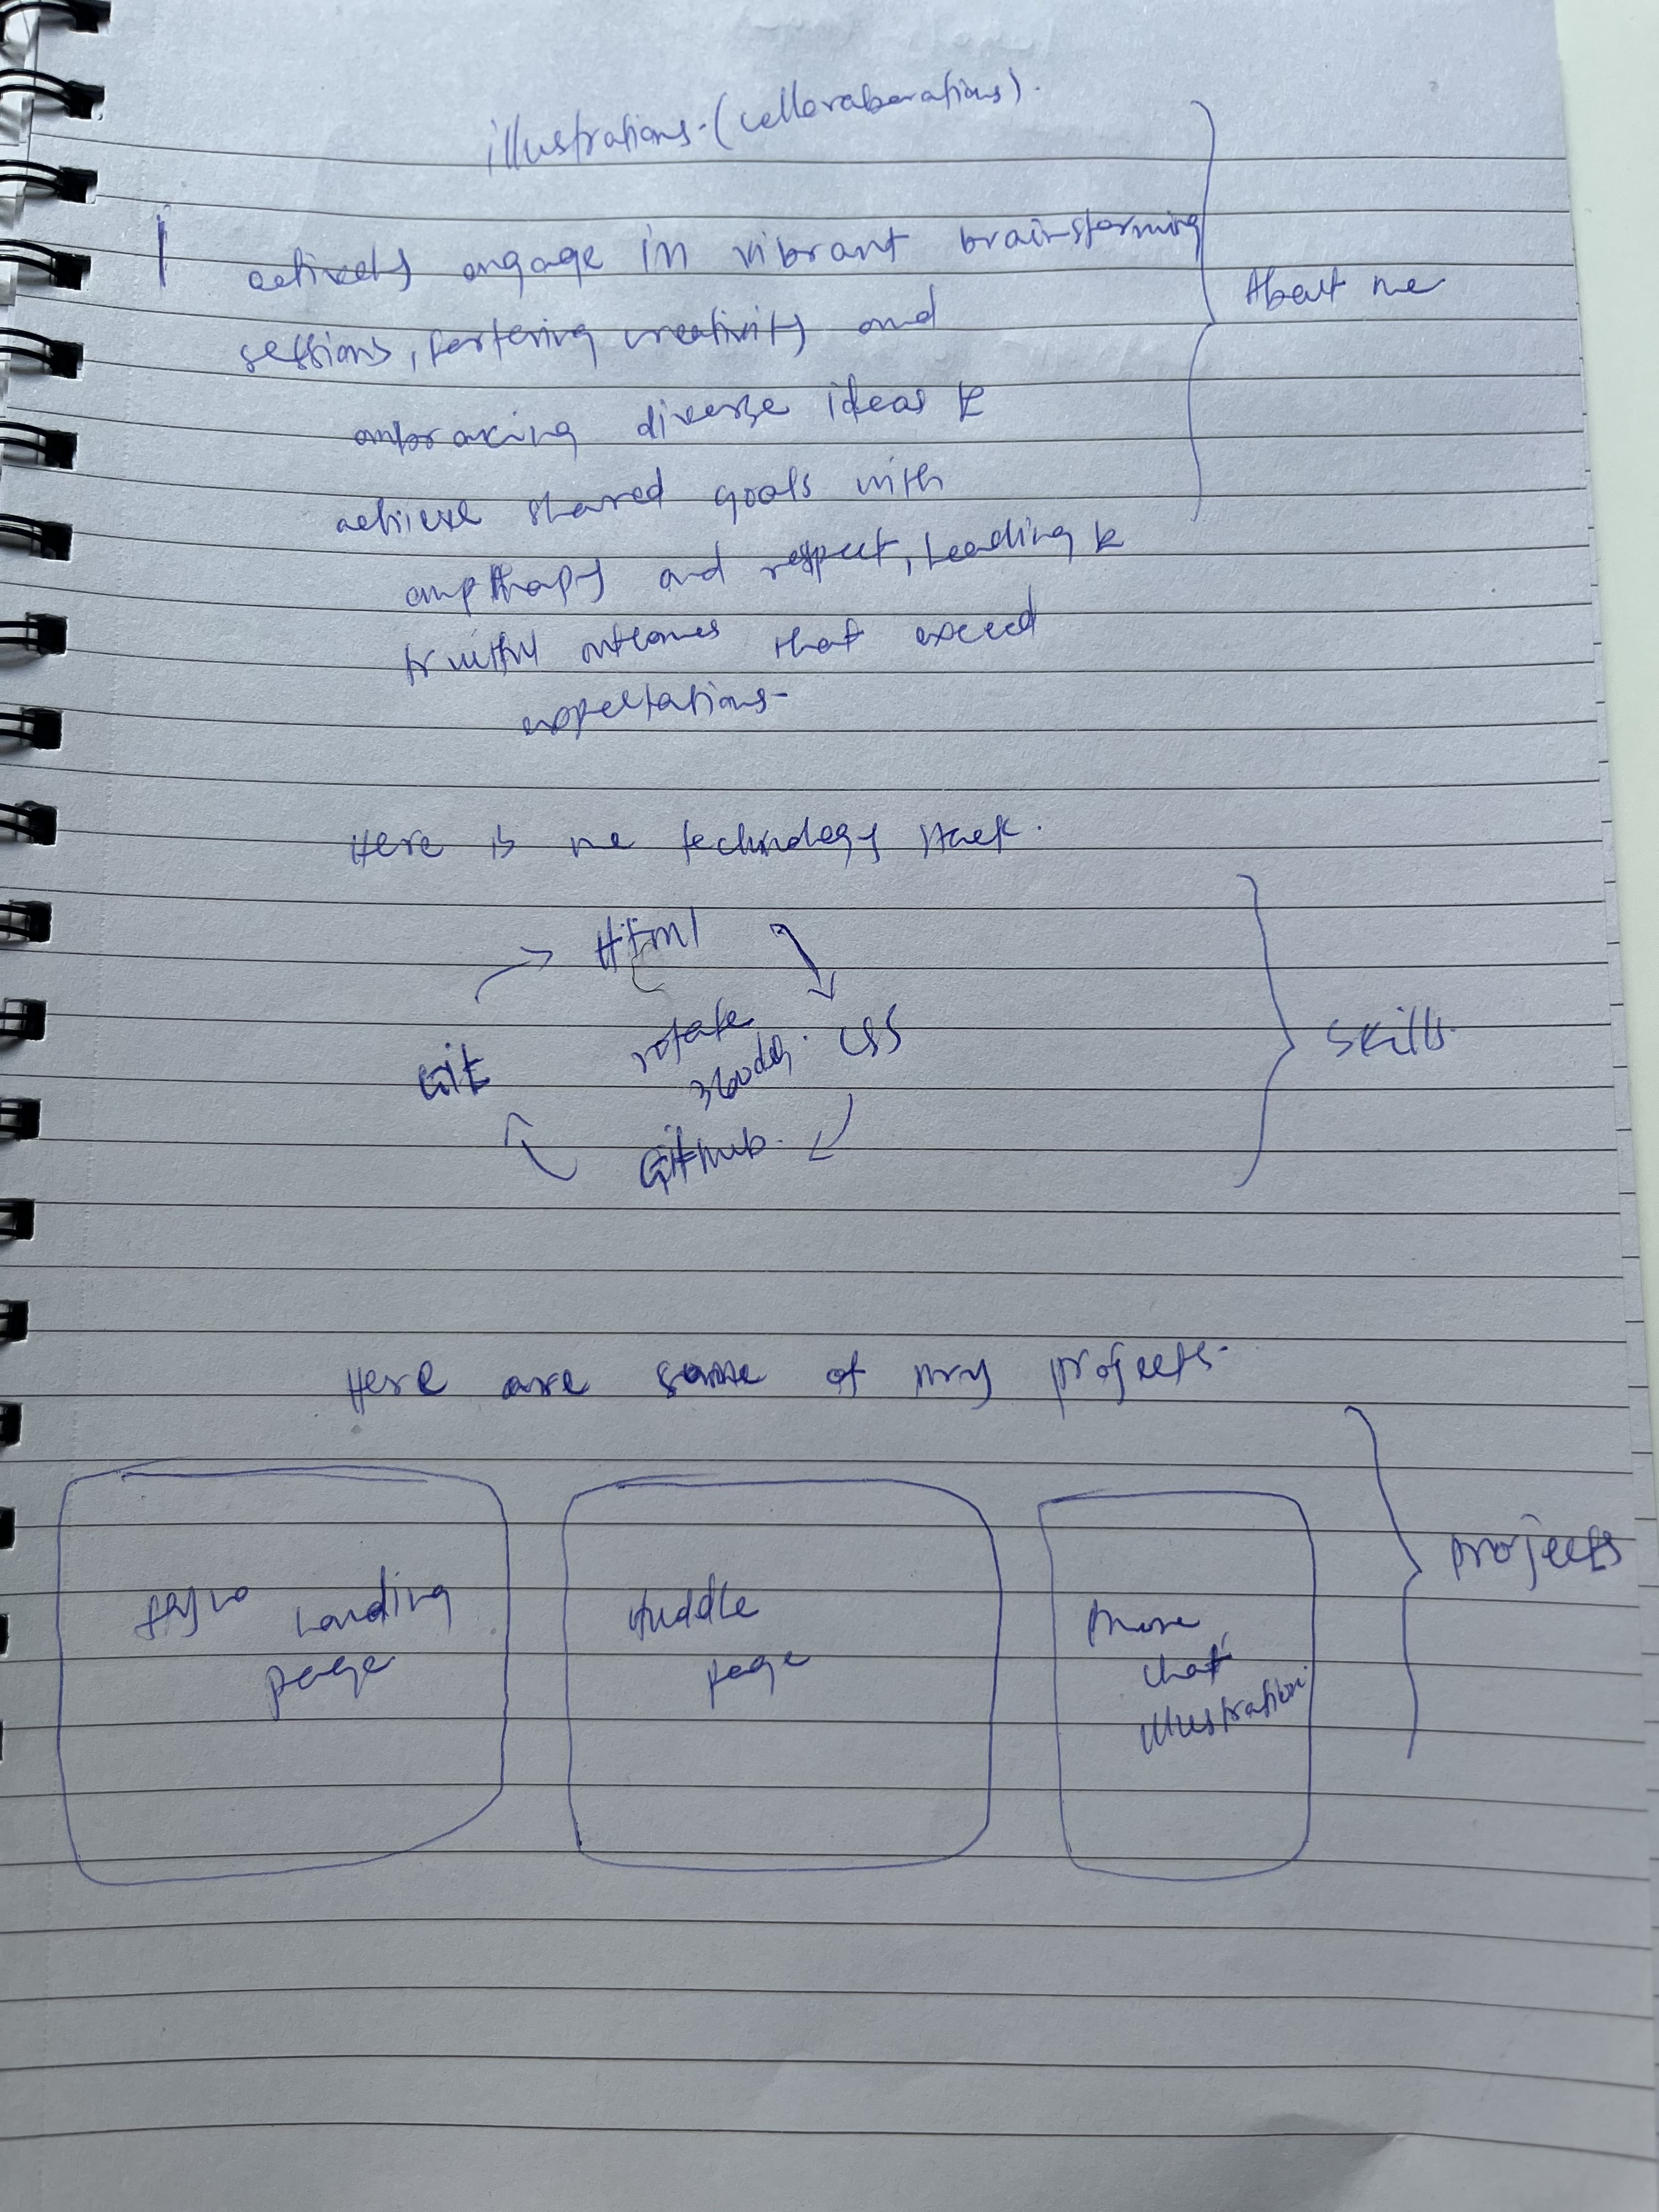 illustrations-(colloraborations).
I actively engage in vibrant brainstorming
About me
sessions, fostering creativity and
embracing diverse ideas &
achieve shared goals with
and respect, leading to
fruitful outcomes that exceed
expectations-
Here is me technology stack.
Html
rotate
360deg.
CSS
Git
Skills.
GitHub.
Here are some of my projects.
projects
Landing
page
Huddle
page
chat
illustration.